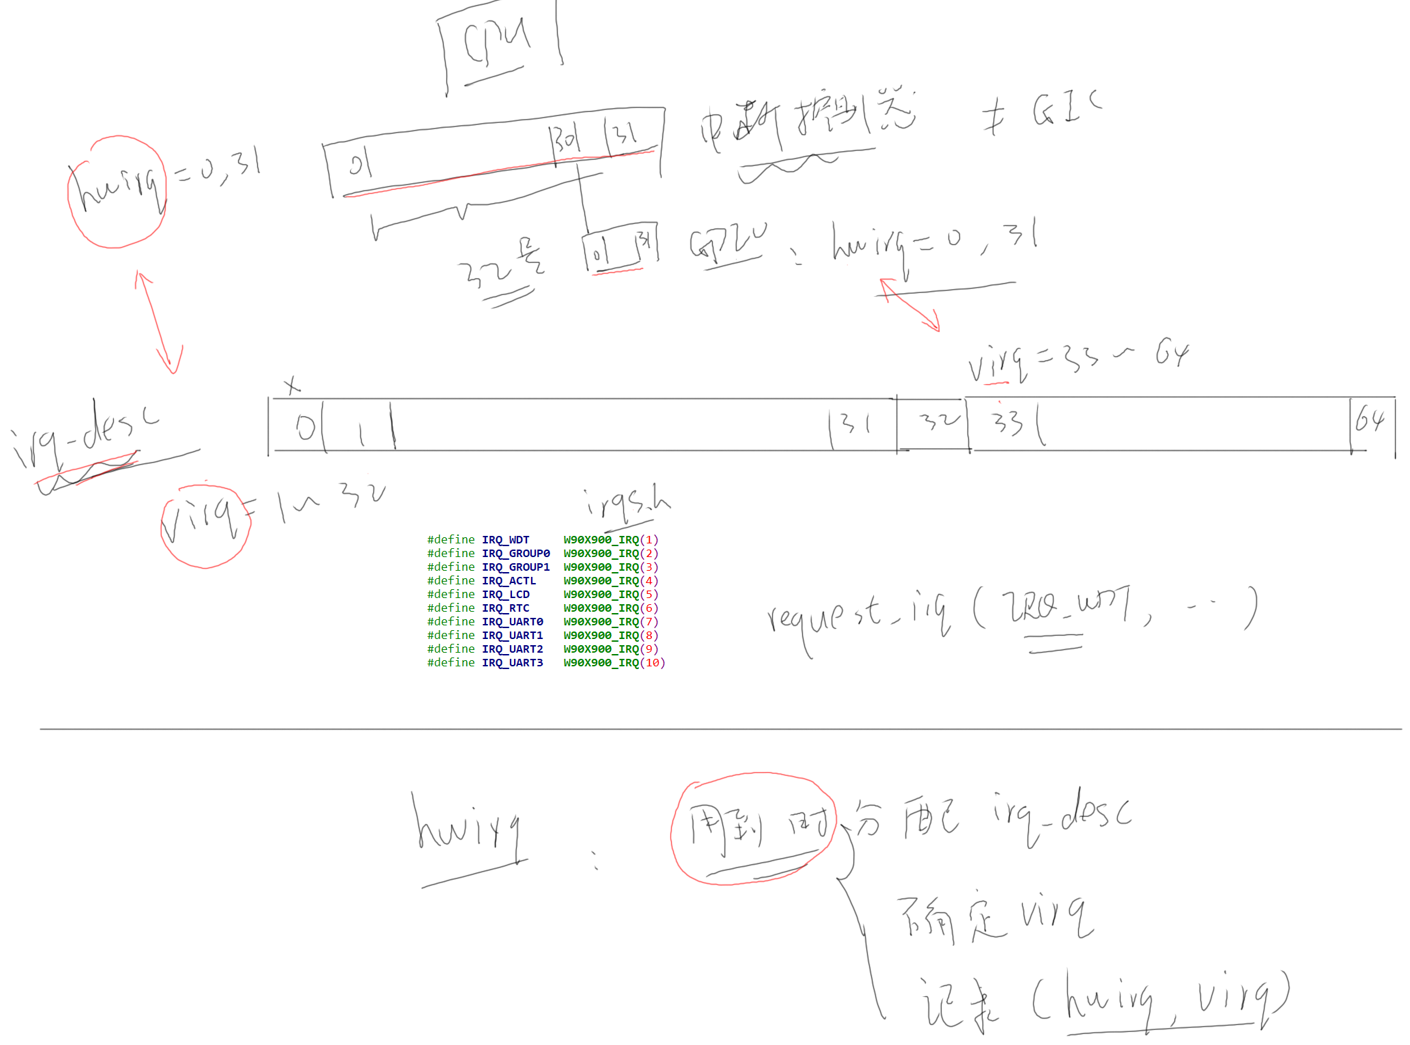 CPU
hwirq = 0, 31
0 30 31
中断控制器 ≠ GIC
32号 0 31 GPIO : hwirq = 0, 31
virq = 33 ~ 64
x
irq-desc
0 1 31 32 33 64
virq = 1 ~ 32
irqs.h
#define IRQ_WDT W90X900_IRQ(1)
#define IRQ_GROUP0 W90X900_IRQ(2)
#define IRQ_GROUP1 W90X900_IRQ(3)
#define IRQ_ACTL W90X900_IRQ(4)
#define IRQ_LCD W90X900_IRQ(5)
#define IRQ_RTC W90X900_IRQ(6)
#define IRQ_UART0 W90X900_IRQ(7)
#define IRQ_UART1 W90X900_IRQ(8)
#define IRQ_UART2 W90X900_IRQ(9)
#define IRQ_UART3 W90X900_IRQ(10)
request_irq ( IRQ_WDT, ... )
hwirq : 用到时 分配 irq-desc
确定 virq
记录 (hwirq, virq)